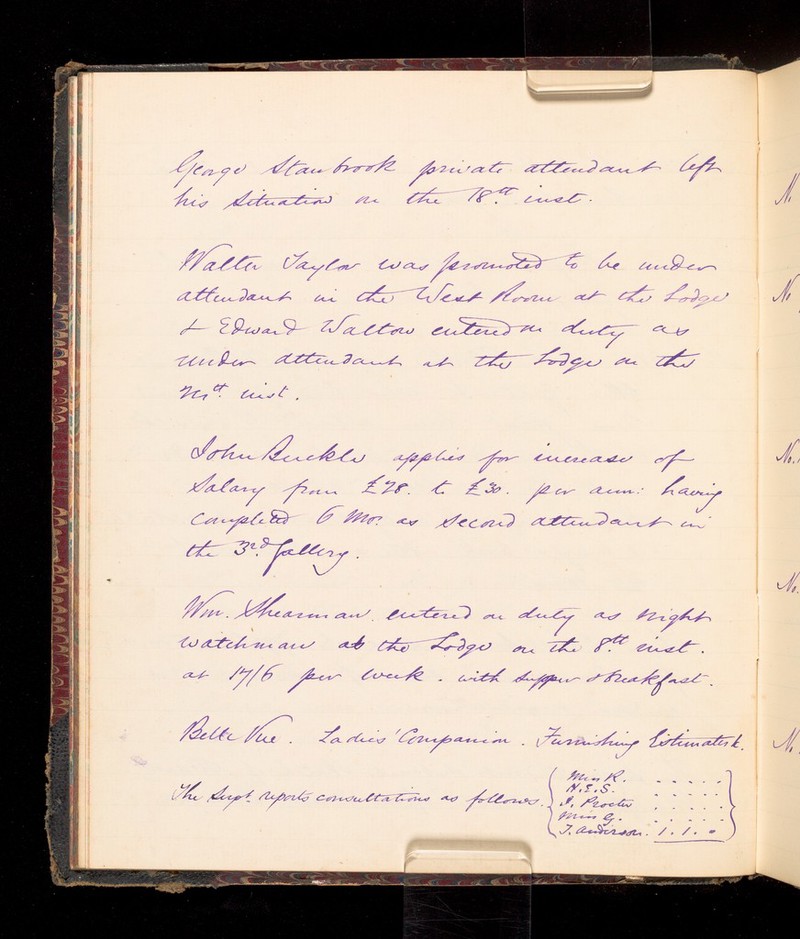 George Stanbrook private attendant left
his situation on the 18th. inst.
Walter Taylor was promoted to be under
attendant in the West Room at the Lodge
& Edward Walton entered on duty as
under attendant at the Lodge on the
inst.
John Buckle applies for increase of
Salary from £28. to £30. per ann: having
completed 6 Mos. as second attendant in
the 3rd. Gallery.
Wm. Shearman entered on duty as night
watchman at the Lodge on the 8th. inst.
at 17/6 per week. with supper & breakfast.
Belle Vue. Ladies' Companion. Furnishing Estimates &c.
The Supt. reports consultations as follows.
Miss R. . . . . .
H.E.S. . . . . .
J. Procter . . . . .
Miss G. . . . . .
T. Anderson. 1. 1. 0
No.
No.
No.
No.
No.